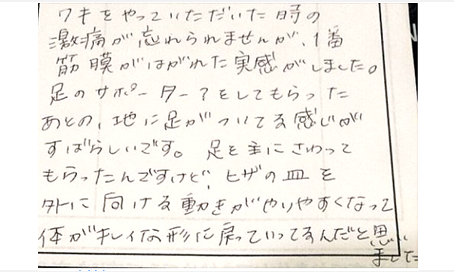 ワキをやっていただいた時の
激痛が忘れられませんが、1番
筋膜がはがれた実感がしました。
足のサポーター?をしてもらった
あとの、地に足がついてる感じが
すばらしいです。足を主にさわって
もらったんですけど、ヒザの皿を
外に向ける動きがやりやすくなって
体がキレイな形に戻っていってるんだと思い
ました